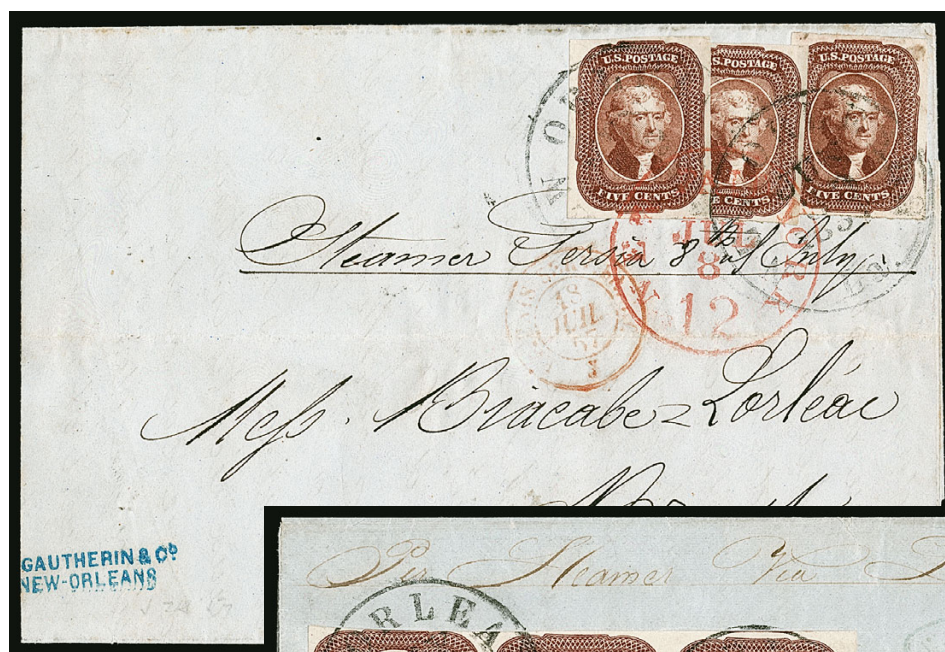 U.S.POSTAGE
FIVE CENTS
U.S.POSTAGE
FIVE CENTS
U.S.POSTAGE
FIVE CENTS
N. ORL
Steamer Persia 8th July.
JUL
8
12
18
JUIL
57
3
Mess. Biacabe = Lorléac
GAUTHERIN & Co
NEW-ORLEANS
Per Steamer Via
RLEA